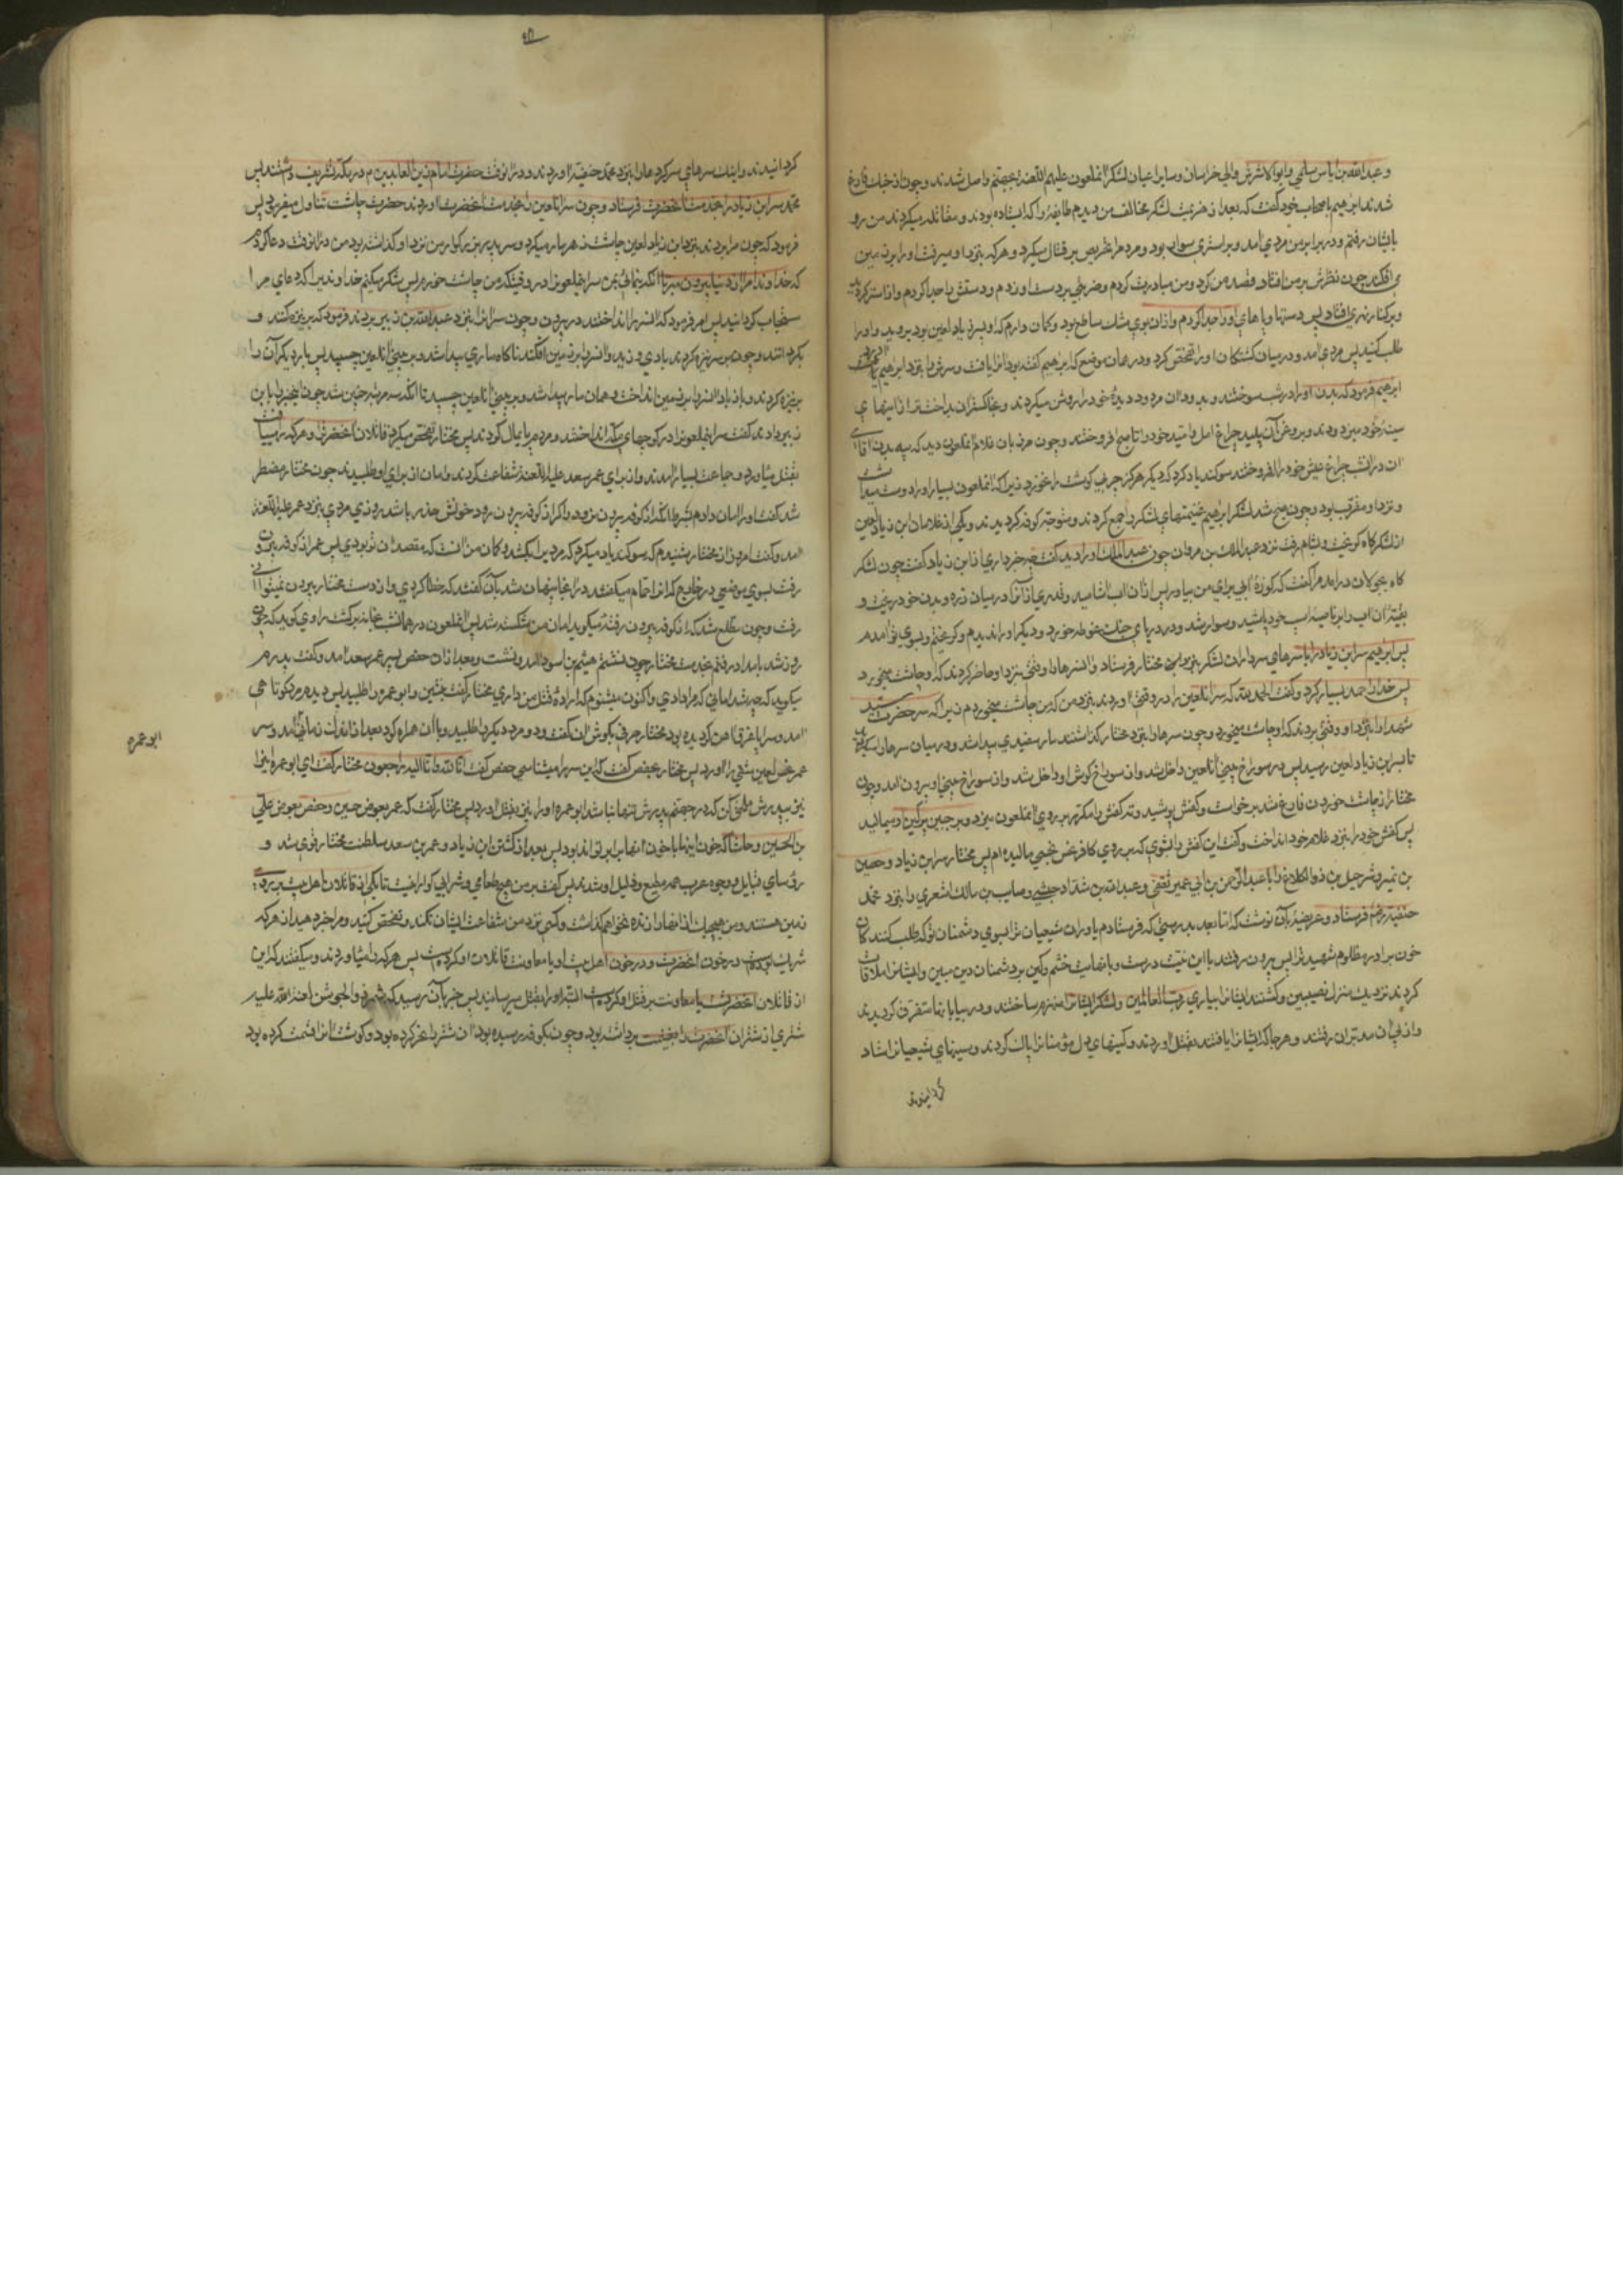 و عبدالله بن ایاس سلمی و ابوالاشرس والی خراسان و سایر اعیان لشکر آنملعون علیهم اللعنة بجهنم واصل شدند و چون از جنک فارغ
شدند ابرهیم باصحاب خود کفت که بعد از هزیمت لشکر مخالف من دیدم طایفهٔ را که ایستاده بودند و مقاتله میکردند من رو
بایشان رفتم و در برابر من مردی آمد و بر استری سوار بود و مردم را تحریص بر قتال میکرد و هر که بنزد او میرفت او را بر زمین
می افکند چون نظرش بر من افتاد قصد من کرد و من مبادرت کردم و ضربتی بر دست او زدم و دستش را جدا کردم و از استر کردید
و بر کنار نهری افتاد پس دستها و پاهای او را جدا کردم و از ان بوی مشک ساطع بود و کمان دارم که او پسر زیاد لعین بود بروید و او را
طلب کنید پس مردی آمد و در میان کشتکان او را تفحص کرد و در همان موضع که ابرهیم کفته بود او را یافت و سرش را بنزد ابرهیم آورد
ابرهیم فرمود که بدن او را در شب سوختند و بدود ان مردود دیدهٔ خود را روشن میکردند و بخاکستر ان بد اختر از اینهای
سینهٔ خود میزدودند و بروغن آن پلید چراغ امل و امید خود را تا صبح افروختند و چون مهران غلام آنملعون دید که پیه بدن اقای
ان در انشب چراغ عیش خود را افروختند سوکند یاد کرد که دیکر هرکز چربی کوشت را نخورد زیرا که آنملعون بسیار او را دوست میداشت
و نزد او مقرب بود و چون صبح شد لشکر ابرهیم غنیمتهای لشکر را جمع کردند و متوجه کوفه کردیدند و یکی از غلامان ابن زیاد لعین
از لشکرکاه کریخت و بشام رفت نزد عبدالملک بن مروان چون عبدالملک او را دید کفت چه خبر داری از ابن زیاد کفت چون لشکر
کاه بجولان درآمد مرا کفت که کوزهٔ آبی برای من بیاور پس از ان اب اشامید و قدری از آنرا در میان زره و بدن خود ریخت و
بقیهٔ ان اب را بر ناصیهٔ اسب خود پاشید و سوار شد و در دریای جنک غوطه خورد و دیکر او را ندیدم و کریختم و بسوی تو آمدم
پس ابرهیم سر ابن زیاد را با سرهای سرداران لشکر بنزد مختار فرستاد و انسرها را وقتی بنزد او حاضر کردند که او چاشت میخورد
پس خدا را حمد بسیار کرد و کفت الحمدلله که سر انلعین را در وقتی آوردند بنزد من که من چاشت میخوردم زیرا که سر حضرت سید
شهدا را بنزد او وقتی بردند که او چاشت میخورد و چون سرها را بنزد مختار کذاشتند مار سفیدی پیدا شد و در میان سرها میکردید
تا بسر ابن زیاد لعین رسید پس در سوراخ بینی انلعین داخل شد و از سوراخ کوش او داخل شد و از سوراخ بینی او بیرون آمد و چون
مختار از چاشت خوردن فارغ شد برخواست و کفش پوشید و ته کفش را مکرر بر روی آنملعون میزد و بر جبین پرکین او میمالید
پس کفش خود را بنزد غلام خود انداخت و کفت این کفش را بشوی که بر روی کافر نجس مالیده ام پس مختار سر ابن زیاد و حصین
بن نمیر و شرحیل بن ذوالکلاع را با عبدالرحمن بن ابی عمیر ثقفی و عبدالله بن شداد جشمی و صایب بن مالک اشعری را بنزد محمد
حنفیه فرستاد و عریضهٔ بآن نوشت که اما بعد بدرستی که فرستادم یاوران شیعیان ترا بسوی دشمنان تو که طلب کنند
خون برادر مظلوم شهید ترا پس بیرون رفتند با این نیت درست و با نهایت خشم و کین بر دشمنان دین مبین و ایشانرا ملاقات
کردند نزدیک منزل نصیبین و کشتند ایشانرا بیاری رب العالمین و لشکر ایشانرا منهزم ساختند و در بیابانها متفرق کردیدند
و از پی ان مدبران رفتند و هرجا که ایشانرا یافتند بقتل آوردند و کینهای دل مؤمنانرا پاک کردند و سینهای شیعیانرا شاد
کردانیدند
کردانیدند و اینک سرهای سرکردهارا بنزد محمد حنفیه آوردند و در انوقت حضرت امام زین العابدین م در مکه تشریف داشتند پس
محمد سر ابن زیاد را بخدمت انحضرت فرستاد و چون سر انلعین را بخدمت انحضرت آوردند حضرت چاشت تناول میفرمود پس
فرمود که چون مرا بردند بنزد ابن زیاد لعین چاشت زهر مار میکرد و سر پدر بزرکوار من نزد او کذاشته بود من در انوقت دعا کردم
که خداوندا مرا از دنیا بیرون مبر تا انکه بنمائی بمن سر آنملعونرا در وقتیکه من چاشت خورم پس شکر میکنم خداوندیرا که دعای مرا
مستجاب کردانید پس امر فرمود که انسر را انداختند در بیرون و چون سر انرا بنزد عبدالله بن زبیر بردند فرمود که بر نیزه کنند و
بکردانند و چون بر سر نیزه کردند بادی وزید و انسر را بر زمین افکند ناکاه ماری پیدا شد و بر بینی انلعین چسپید پس بار دیکر آن را
بر نیزه کردند و باز باد انسر را بر زمین انداخت و همان مار پیدا شد و بر بینی انلعین چسپید تا انکه سه مرتبه چنین شد چون اینخبر را بابن
زبیر دادند کفت سر آنملعونرا در کوچهای مکه انداختند و مردم پایمال کردند پس مختار تفحص میکرد قاتلان انحضرترا و هر که را میافت
بقتل میاورد و جماعت بسیار آمدند و از برای عمر سعد علیه اللعنه شفاعت کردند و امان از برای او طلبیدند چون مختار مضطر
شد کفت او را امان دادم بشرط انکه از کوفه بیرون نرود و اکر از کوفه بیرون رود خونش هدر باشد روزی مردی بنزد عمر علیه اللعنه
آمد و کفت امروز از مختار شنیدم که سوکند یاد میکرد که مردیرا بکشد و کمان من انست که مقصد ان تو بودی پس عمر از کوفه بیرون
رفت بسوی موضعی در خارج که انرا حمام میکفتند در انجا پنهان شد بآن کفتند که خطا کردی و از دست مختار بیرون نمیتوانی
رفت و چون مطلع شد که از کوفه بیرون رفتهٔ میکوید امان من شکسته شد پس آنملعون در همانشب بخانه برکشت راوی کوید که چون
روز شد بامداد رفتم بخدمت مختار چون نشستم هیثم بن اسود آمد و نشست و بعد از ان حفص پسر عمر سعد آمد و کفت پدرم
میکوید که چه شد امانی که مرا دادی و اکنون میشنوم که ارادهٔ قتل من داری مختار کفت بنشین و ابوعمره را طلبید پس دیدم مرد کوتاهی
آمد و سراپا غرق آهن کردیده بود مختار حرفی بکوش ان کفت و دو مرد دیکر را طلبید و با ان همراه کرد بعد از اندک زمانی آمد و سر
عمر نحس لعین شقی را آورد پس مختار بحفص کفت که این سر را میشناسی حفص کفت انا لله و انا الیه راجعون مختار کفت ای ابوعمره اینرا
نیز بپدرش ملحق کن که در جهنم پدرش تنها نباشد ابوعمره او را نیز بقتل آورد پس مختار کفت که عمر بعوض حسین و حفص بعوض علی
بن الحسین و حاشا که خون اینها با خون انها برابر تواند بود پس بعد از کشتن ابن زیاد و عمر بن سعد سلطنت مختار قوی شد و
رؤسای قبایل و وجوه عرب همه مطیع و ذلیل او شدند پس کفت بر من هیچ طعامی و شرابی کوارا نیست تا یکی از قاتلان اهل بیت بر روی
زمین هستند و من هیچیک از انها را زنده نخواهم کذاشت و کسی نزد من شفاعت ایشان نکند و تفحص کنید و مرا خبر دهید از هر که
شریک بوده است در خون انحضرت و در خون اهل بیت او یا معاونت قاتلان او کرده است پس هر که را میاوردند و میکفتند که این
از قاتلان انحضرتست یا معاونت بر قتل او کرده است البته او را بقتل میرسانید پس خبر بآن رسید که شمر ذوالجوشن لعنة الله علیه
شتری از شتران انحضرت را بغنیمت برداشته بود و چون بکوفه رسیده بود ان شتر را نحر کرده بود و کوشت انرا قسمت کرده بود
ابو عمره